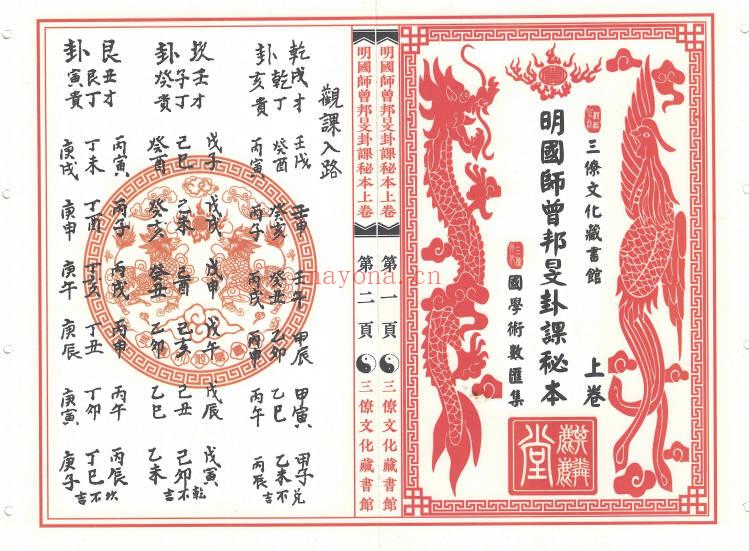 三僚文化藏書館
上卷
明國師曾邦旻卦課秘本
國學術數匯集
麒麟堂
明國師曾邦旻卦課秘本上卷 第一頁 三僚文化藏書館
明國師曾邦旻卦課秘本上卷 第二頁 三僚文化藏書館
觀課入路
乾戌才 壬戌 壬申 壬午 甲辰 甲寅 甲子兌
乾丁 癸酉 癸亥 癸丑 乙卯 乙巳 乙未不吉
卦亥貴 丙寅 丙子 丙戌 丙申 丙午 丙辰
坎壬才 戊子 戊戌 戊申 戊午 戊辰 戊寅乾
子丁 己巳 己未 己酉 己亥 己丑 己卯不吉
卦癸貴 癸酉 癸亥 癸丑 乙卯 乙巳 乙未
艮丑才 丙寅 丙子 丙戌 丙申 丙午 丙辰坎
艮丁 丁未 丁酉 丁亥 丁丑 丁卯 丁巳不吉
卦寅貴 庚戌 庚申 庚午 庚辰 庚寅 庚子
nayona.cn